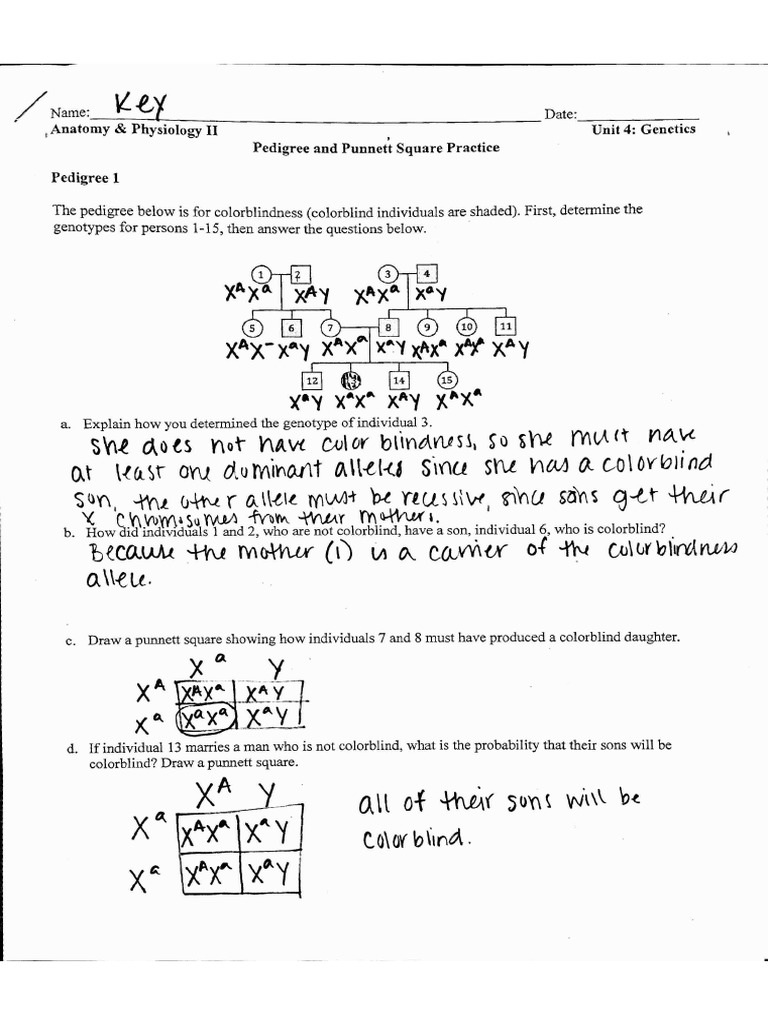 Name: Key Date:
Anatomy & Physiology II Unit 4: Genetics
Pedigree and Punnett Square Practice
Pedigree 1
The pedigree below is for colorblindness (colorblind individuals are shaded). First, determine the
genotypes for persons 1-15, then answer the questions below.
1 2 3 4
XᴬXᵃ XᴬY XᴬXᵃ XᵃY
5 6 7 8 9 10 11
XᴬX⁻ XᵃY XᴬXᵃ XᵃY XᴬXᵃ XᴬXᵃ XᴬY
12 14 15
XᵃY XᵃXᵃ XᴬY XᴬXᵃ
a. Explain how you determined the genotype of individual 3.
She does not have color blindness, so she must have
at least one dominant allele. Since she has a colorblind
son, the other allele must be recessive, since sons get their
X chromosomes from their mothers.
b. How did individuals 1 and 2, who are not colorblind, have a son, individual 6, who is colorblind?
Because the mother (1) is a carrier of the colorblindness
allele.
c. Draw a punnett square showing how individuals 7 and 8 must have produced a colorblind daughter.
Xᵃ Y
Xᴬ XᴬXᵃ XᴬY
Xᵃ XᵃXᵃ XᵃY
d. If individual 13 marries a man who is not colorblind, what is the probability that their sons will be
colorblind? Draw a punnett square.
Xᴬ Y
Xᵃ XᴬXᵃ XᵃY
Xᵃ XᴬXᵃ XᵃY
all of their sons will be
colorblind.